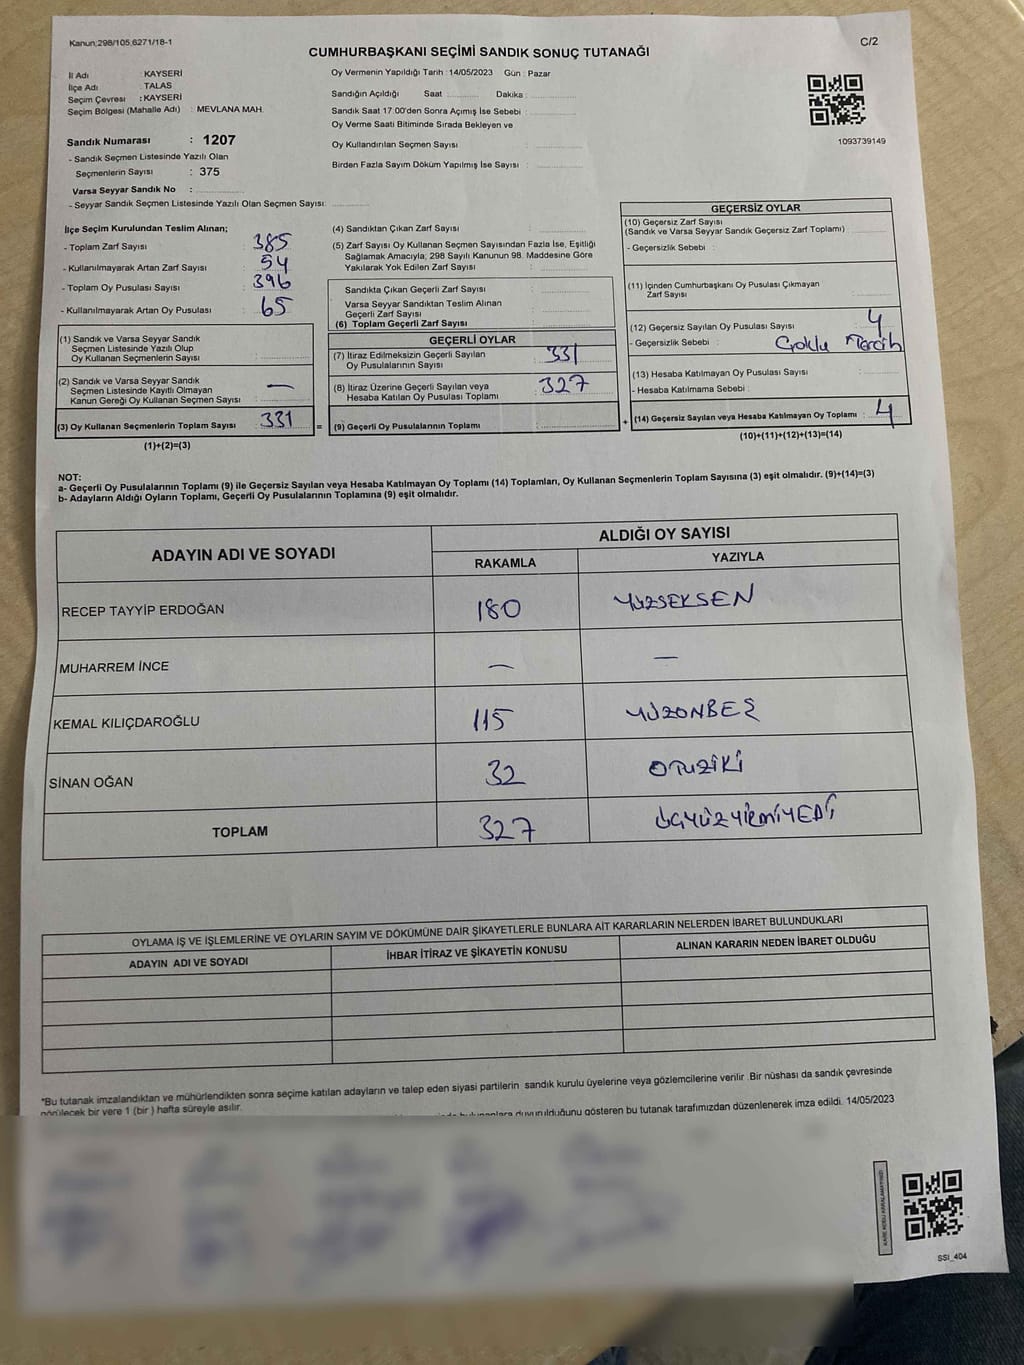 Kanun;298/105;6271/18-1
C/2
CUMHURBAŞKANI SEÇİMİ SANDIK SONUÇ TUTANAĞI
İl Adı : KAYSERİ
İlçe Adı : TALAS
Seçim Çevresi : KAYSERİ
Seçim Bölgesi (Mahalle Adı) : MEVLANA MAH.
Sandık Numarası : 1207
- Sandık Seçmen Listesinde Yazılı Olan
Seçmenlerin Sayısı : 375
Varsa Seyyar Sandık No :
- Seyyar Sandık Seçmen Listesinde Yazılı Olan Seçmen Sayısı:
Oy Vermenin Yapıldığı Tarih : 14/05/2023 Gün : Pazar
Sandığın Açıldığı Saat Dakika :
Sandık Saat 17:00'den Sonra Açımış İse Sebebi :
Oy Verme Saati Bitiminde Sırada Bekleyen ve
Oy Kullandırılan Seçmen Sayısı :
Birden Fazla Sayım Döküm Yapılmış İse Sayısı :
1093739149
İlçe Seçim Kurulundan Teslim Alınan;
- Toplam Zarf Sayısı : 385
- Kullanılmayarak Artan Zarf Sayısı : 54
- Toplam Oy Pusulası Sayısı : 396
- Kullanılmayarak Artan Oy Pusulası : 65
(1) Sandık ve Varsa Seyyar Sandık
Seçmen Listesinde Yazılı Olup
Oy Kullanan Seçmenlerin Sayısı :
(2) Sandık ve Varsa Seyyar Sandık
Seçmen Listesinde Kayıtlı Olmayan
Kanun Gereği Oy Kullanan Seçmen Sayısı : —
(3) Oy Kullanan Seçmenlerin Toplam Sayısı : 331
(1)+(2)=(3)
=
(4) Sandıktan Çıkan Zarf Sayısı :
(5) Zarf Sayısı Oy Kullanan Seçmen Sayısından Fazla İse, Eşitliği
Sağlamak Amacıyla; 298 Sayılı Kanunun 98. Maddesine Göre
Yakılarak Yok Edilen Zarf Sayısı :
Sandıkta Çıkan Geçerli Zarf Sayısı :
Varsa Seyyar Sandıktan Teslim Alınan
Geçerli Zarf Sayısı :
(6) Toplam Geçerli Zarf Sayısı :
GEÇERLİ OYLAR
(7) İtiraz Edilmeksizin Geçerli Sayılan
Oy Pusulalarının Sayısı : 331
(8) İtiraz Üzerine Geçerli Sayılan veya
Hesaba Katılan Oy Pusulası Toplamı : 327
(9) Geçerli Oy Pusulalarının Toplamı :
+
GEÇERSİZ OYLAR
(10) Geçersiz Zarf Sayısı
(Sandık ve Varsa Seyyar Sandık Geçersiz Zarf Toplamı)
- Geçersizlik Sebebi :
(11) İçinden Cumhurbaşkanı Oy Pusulası Çıkmayan
Zarf Sayısı :
(12) Geçersiz Sayılan Oy Pusulası Sayısı : 4
- Geçersizlik Sebebi : Çoklu Tercih
(13) Hesaba Katılmayan Oy Pusulası Sayısı :
- Hesaba Katılmama Sebebi :
(14) Geçersiz Sayılan veya Hesaba Katılmayan Oy Toplamı : 4
(10)+(11)+(12)+(13)=(14)
NOT:
a- Geçerli Oy Pusulalarının Toplamı (9) ile Geçersiz Sayılan veya Hesaba Katılmayan Oy Toplamı (14) Toplamları, Oy Kullanan Seçmenlerin Toplam Sayısına (3) eşit olmalıdır. (9)+(14)=(3)
b- Adayların Aldığı Oyların Toplamı, Geçerli Oy Pusulalarının Toplamına (9) eşit olmalıdır.
ADAYIN ADI VE SOYADI
ALDIĞI OY SAYISI
RAKAMLA YAZIYLA
RECEP TAYYİP ERDOĞAN 180 YÜZSEKSEN
MUHARREM İNCE — —
KEMAL KILIÇDAROĞLU 115 YÜZONBEŞ
SİNAN OĞAN 32 OTUZİKİ
TOPLAM 327 ÜÇYÜZYİRMİYEDİ
OYLAMA İŞ VE İŞLEMLERİNE VE OYLARIN SAYIM VE DÖKÜMÜNE DAİR ŞİKAYETLERLE BUNLARA AİT KARARLARIN NELERDEN İBARET BULUNDUKLARI
ADAYIN ADI VE SOYADI İHBAR İTİRAZ VE ŞİKAYETİN KONUSU ALINAN KARARIN NEDEN İBARET OLDUĞU
*Bu tutanak imzalandıktan ve mühürlendikten sonra seçime katılan adayların ve talep eden siyasi partilerin sandık kurulu üyelerine veya gözlemcilerine verilir .Bir nüshası da sandık çevresinde
görülecek bir yere 1 (bir ) hafta süreyle asılır.
bulunanlara duyurulduğunu gösteren bu tutanak tarafımızdan düzenlenerek imza edildi. 14/05/2023
KARE KODU KARALAMAYINIZ!
SSI_404